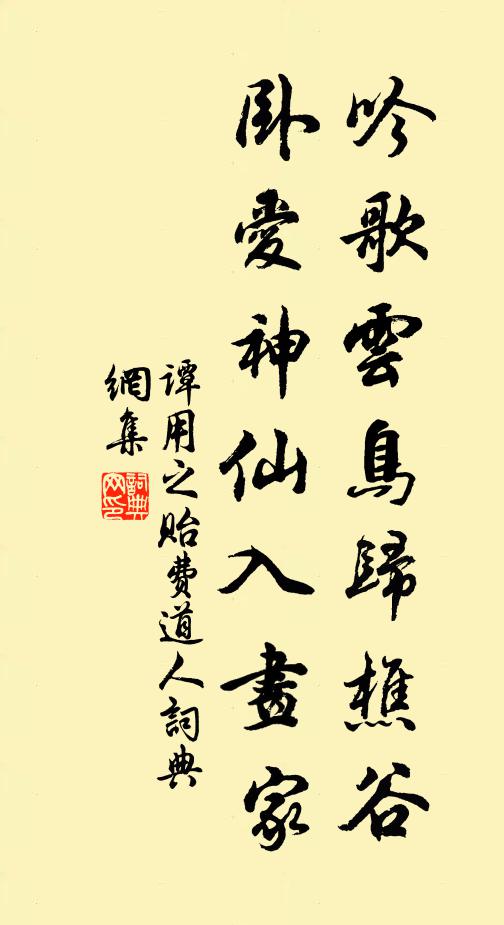 吟歌雲鳥歸樵谷
卧愛神仙入畫家
谭用之贻費道人詞典
網集
詞典网印